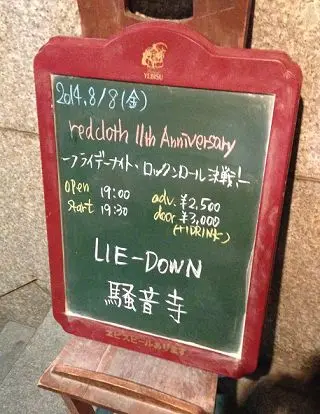 YEBISU
2014.8/8(金)
redcloth 11th Anniversary
-フライデーナイト・ロックンロール決戦!-
open 19:00 adv. ¥2,500
start 19:30 door ¥3,000
(+1DRINK)
LIE-DOWN
騒音寺
ヱビスビールあります